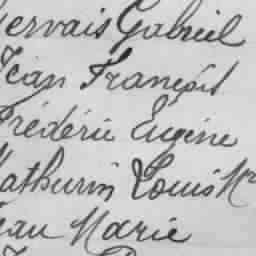 Gervais Gabriel
Jean François
Frédéric Eugène
Mathurin Louis Mie
Jean Marie